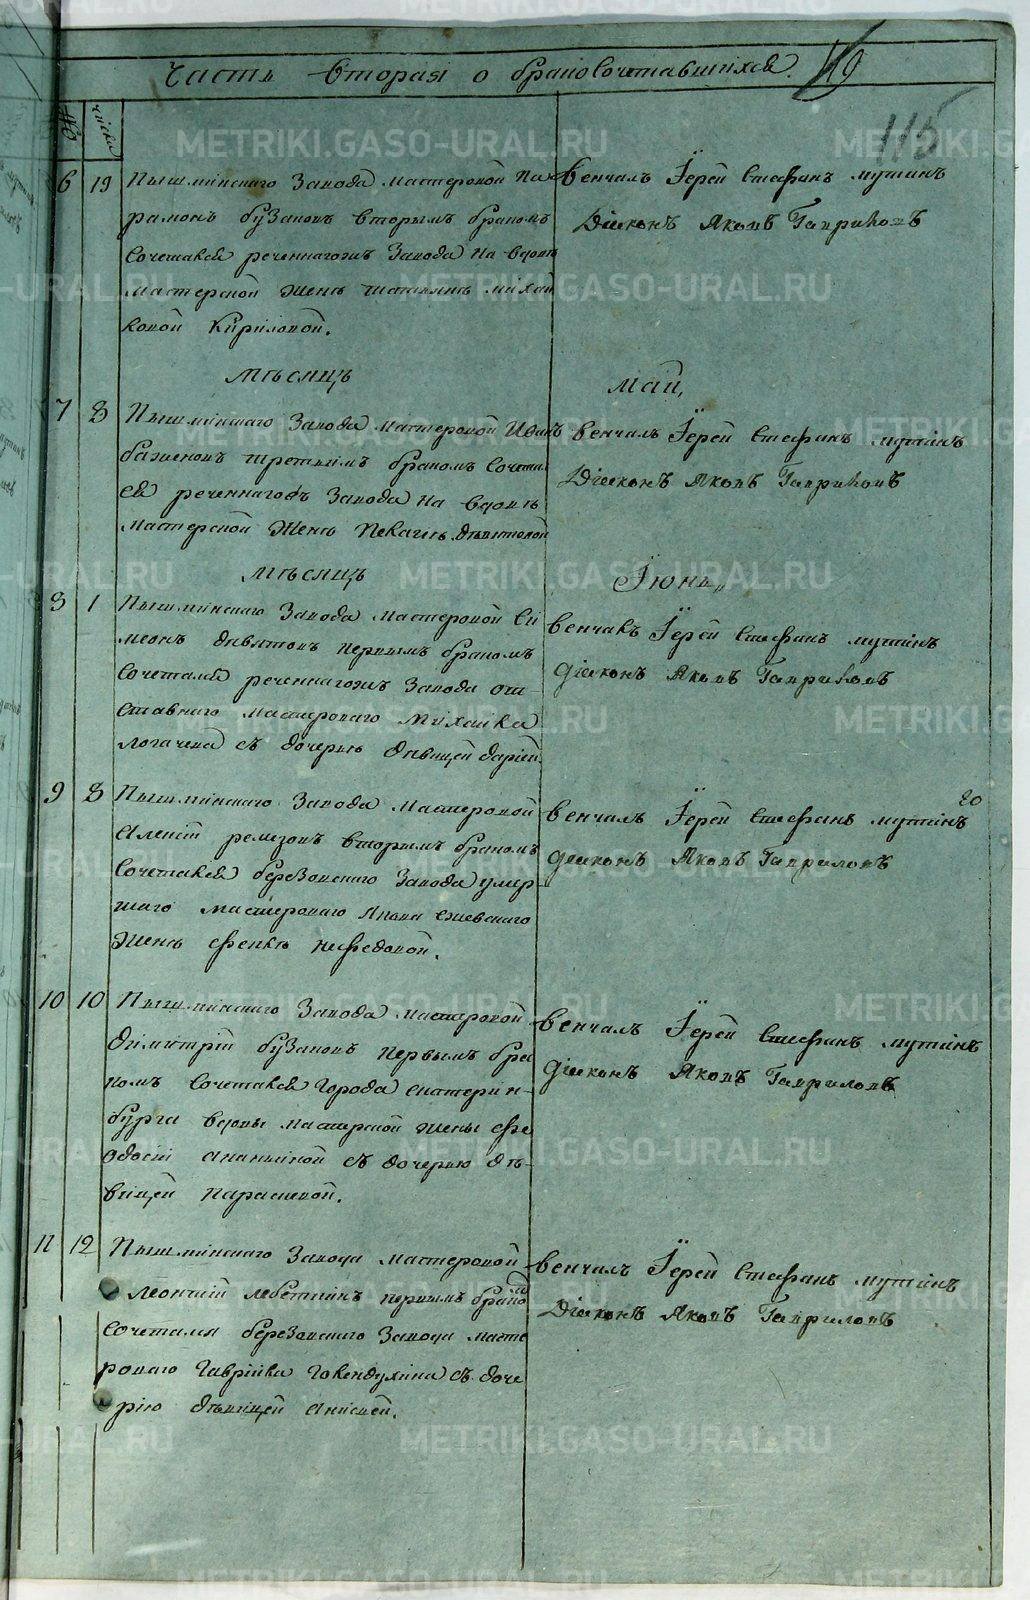 Часть вторая о бракосочетавшихся.
119
115
№
числа
6 19 Пышминскаго Завода мастеровой Па
рамонъ бузановъ вторымъ бракомъ
сочетался реченнагожъ Завода на вдовѣ
мастерской женѣ
ковой Кириловой.
венчалъ Іерей Стефанъ мутинъ
Діаконъ Яковъ Гавриловъ
мѣсяцъ май,
7 8 Пышминскаго Завода мастеровой Иванъ
баженовъ третьимъ бракомъ сочетал
ся реченнагожъ Завода на вдовѣ
мастерской женѣ Пелагеѣ девятовой
венчалъ Іерей Стефанъ мутинъ
Діаконъ Яковъ Гавриловъ
мѣсяцъ Іюнь,
8 1 Пышминскаго Завода мастеровой Си
меонъ девятовъ первымъ бракомъ
сочетался реченнагожъ Завода от
ставнаго мастероваго михаила
логачева съ дочерью дѣвицей дарьей
венчалъ Іерей Стефанъ мутинъ
діаконъ Яковъ Гавриловъ
9 8 Пышминскаго Завода мастеровой
Алексій ремезовъ вторымъ бракомъ
сочетался березовскаго Завода умер
шаго мастероваго Якова
женѣ феклѣ нефедовой.
20
венчалъ Іерей Стефанъ мутинъ
діаконъ Яковъ Гавриловъ
10 10 Пышминскаго Завода мастеровой
димитрій бузановъ первымъ бра
комъ сочетался города екатерин-
бурга вдовы мастерской жены фе
одосіи ананьиной съ дочерью дѣ-
вицей параскевой.
венчалъ Іерей Стефанъ мутинъ
діаконъ Яковъ Гавриловъ
11 12 Пышминскаго Завода мастеровой
леонтій лебеткинъ первымъ бракомъ
сочетался березовскаго Завода масте
роваго гаврійла голендухина съ доче
рію дѣвицей анисией.
венчалъ Іерей Стефанъ мутинъ
Діаконъ Яковъ Гавриловъ
METRIKI.GASO-URAL.RU